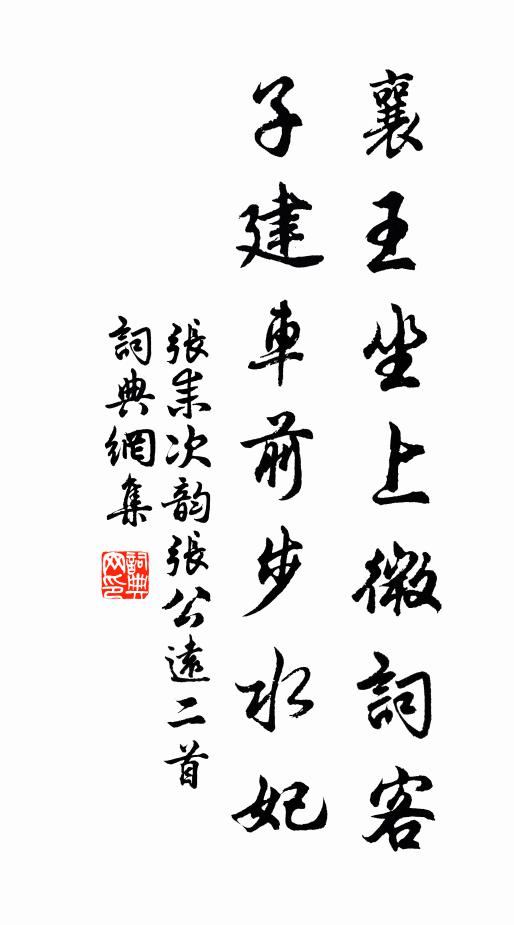 襄王坐上微詞客
子建車前步水妃
張耒次韵張公遠二首
詞典網集
詞典网印